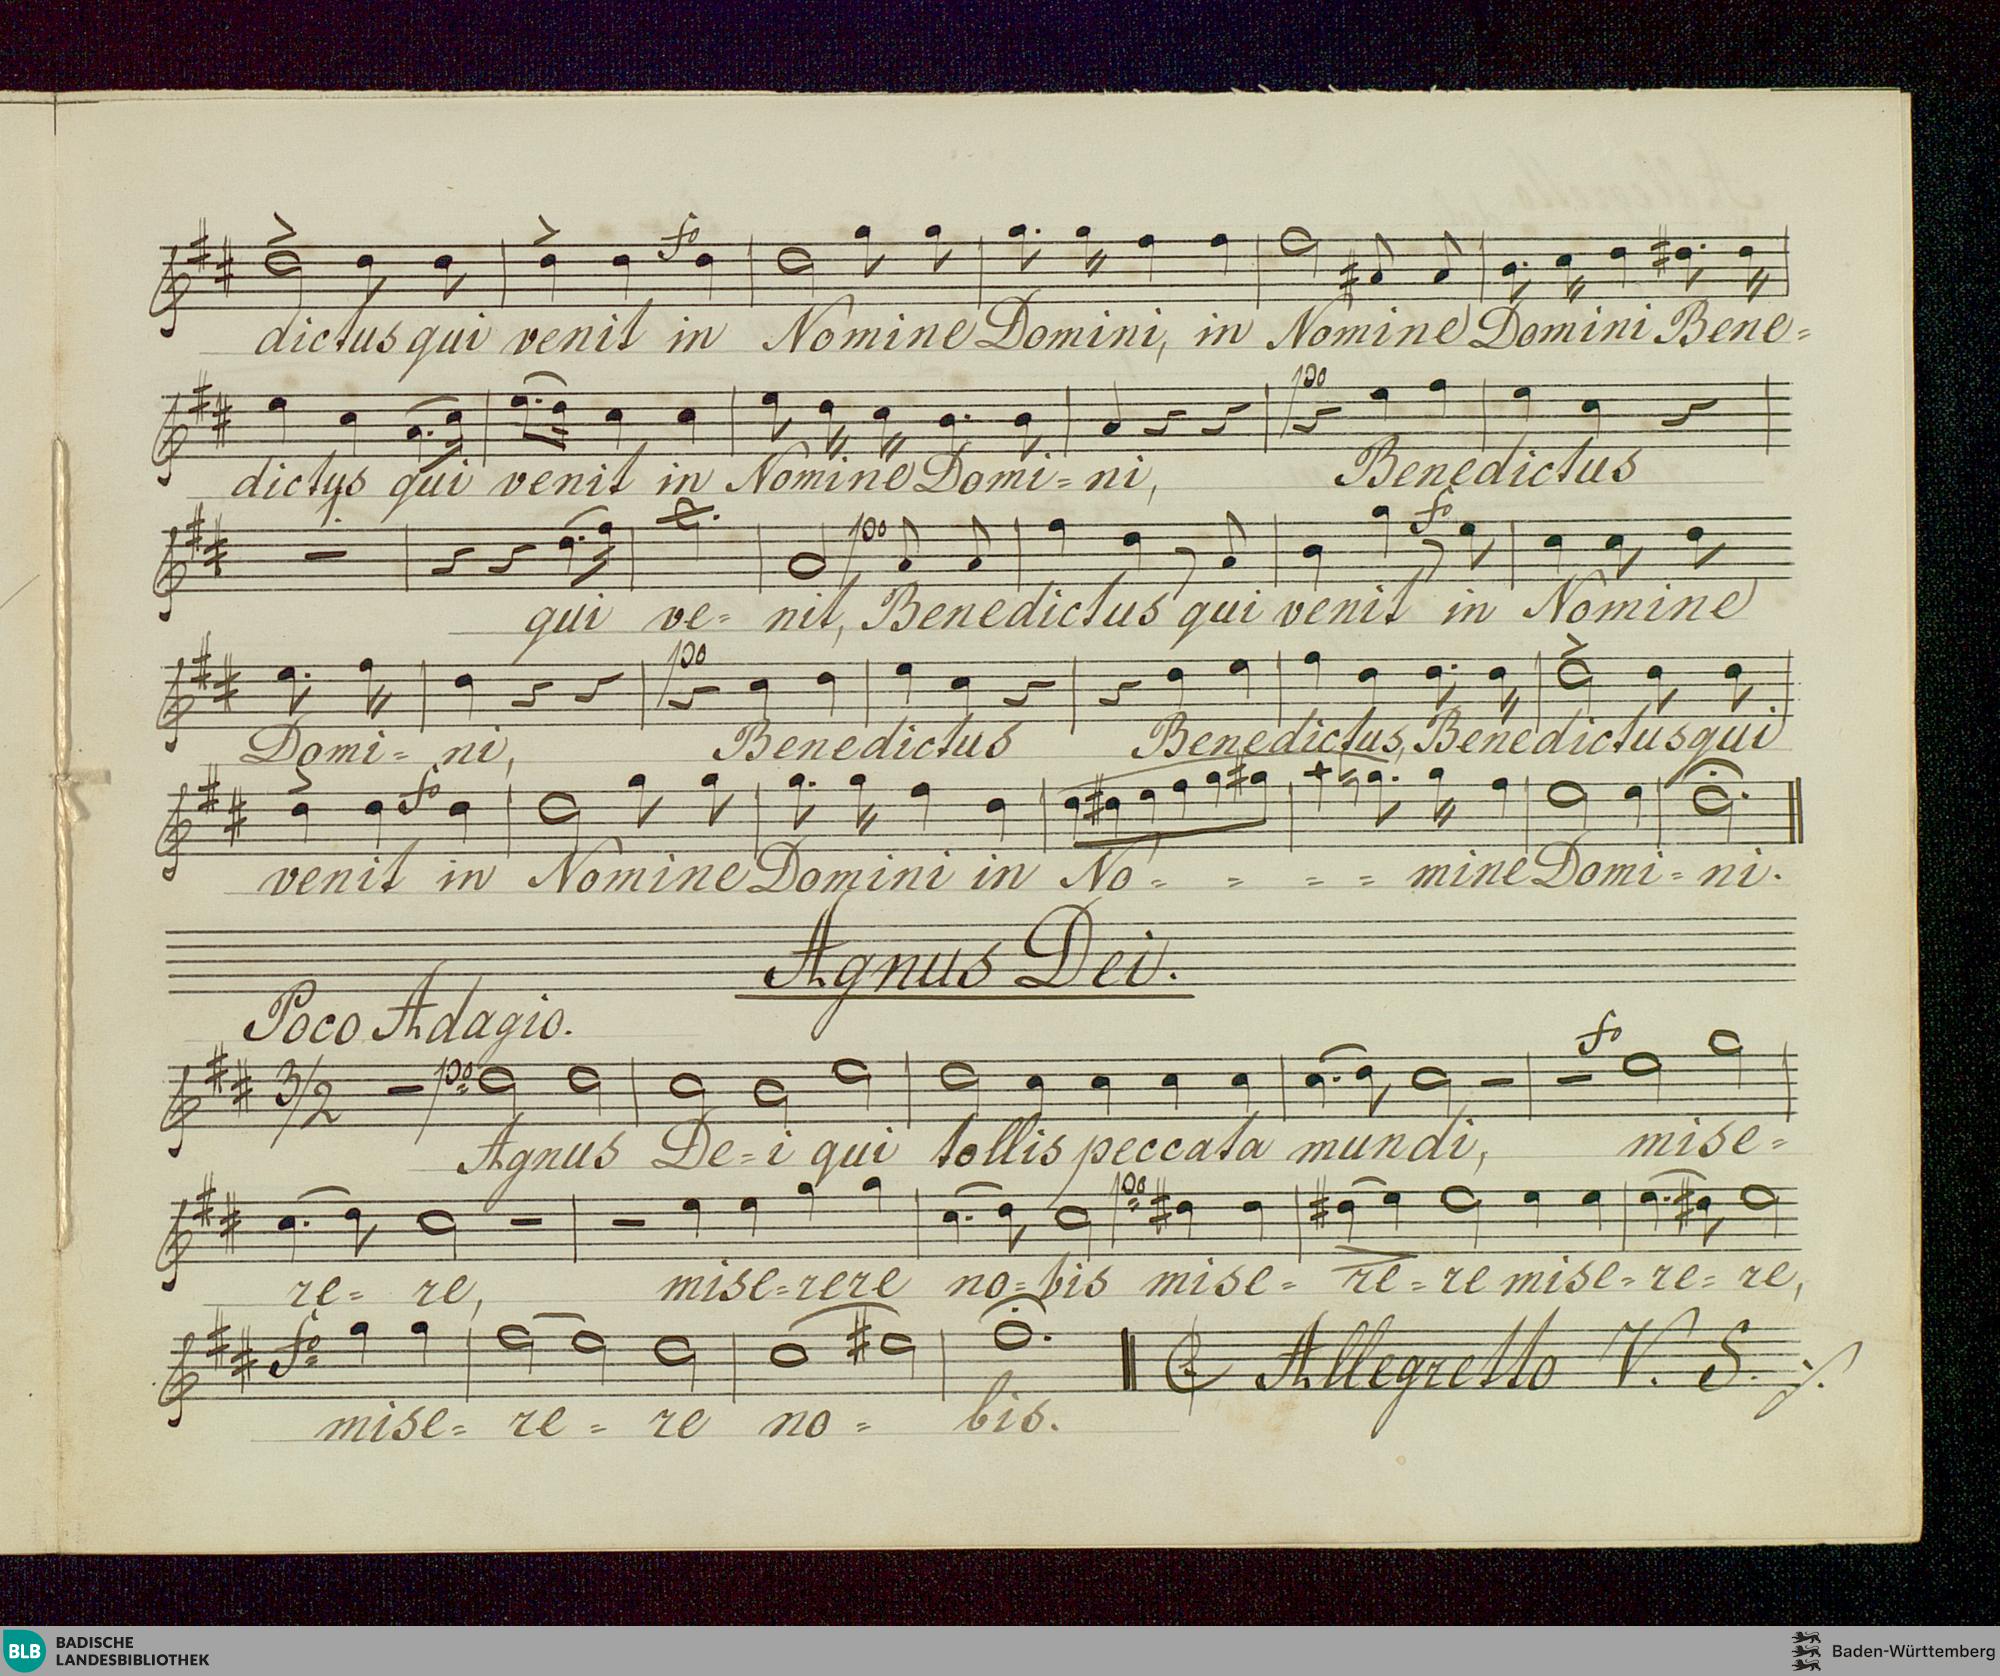 fo
dictus qui venit in Nomine Domini, in Nomine Domini Bene=
po
dictys qui venit in Nomine Domi=ni, Benedictus
po fo
qui ve= nit, Benedictus qui venit in Nomine
po
Domi= ni, Benedictus Benedictus, Benedictus qui
fo
venit in Nomine Domini in No= = = = mine Domi=ni.
Agnus Dei.
Poco Adagio.
3/2 po fo
Agnus De=i qui tollis peccata mundi, mise=
po
re= re, mise=rere no=bis mise= re=re mise=re=re,
fo Allegretto V. S.
mise= re= re no= bis.
BLB BADISCHE
LANDESBIBLIOTHEK
Baden-Württemberg